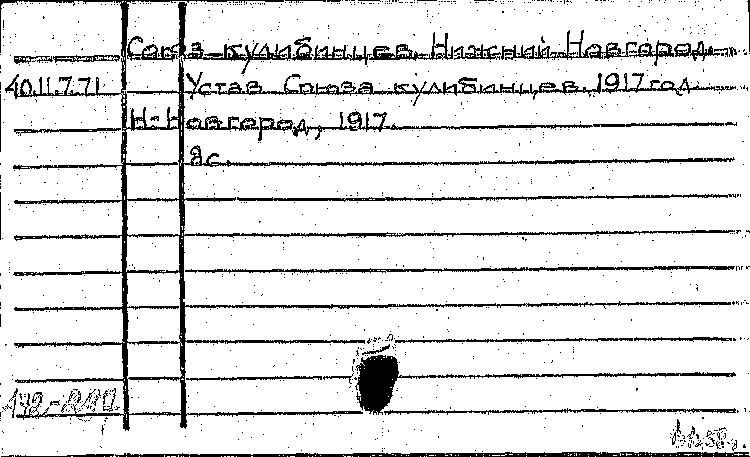 Союз кулибинцев. Нижний Новгород.
40.11.7.71 Устав Союза кулибинцев. 1917 год.
Н-Новгород, 1917.
8с.